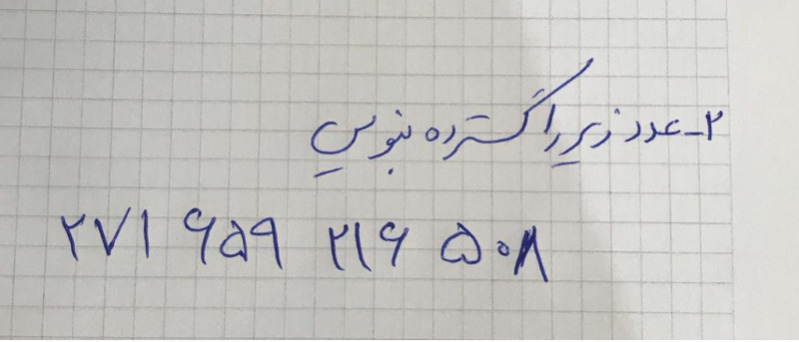 ۲- عدد زیر را گسترده بنویس
۲۷۱ ۶۵۹ ۲۱۶ ۵۰۸